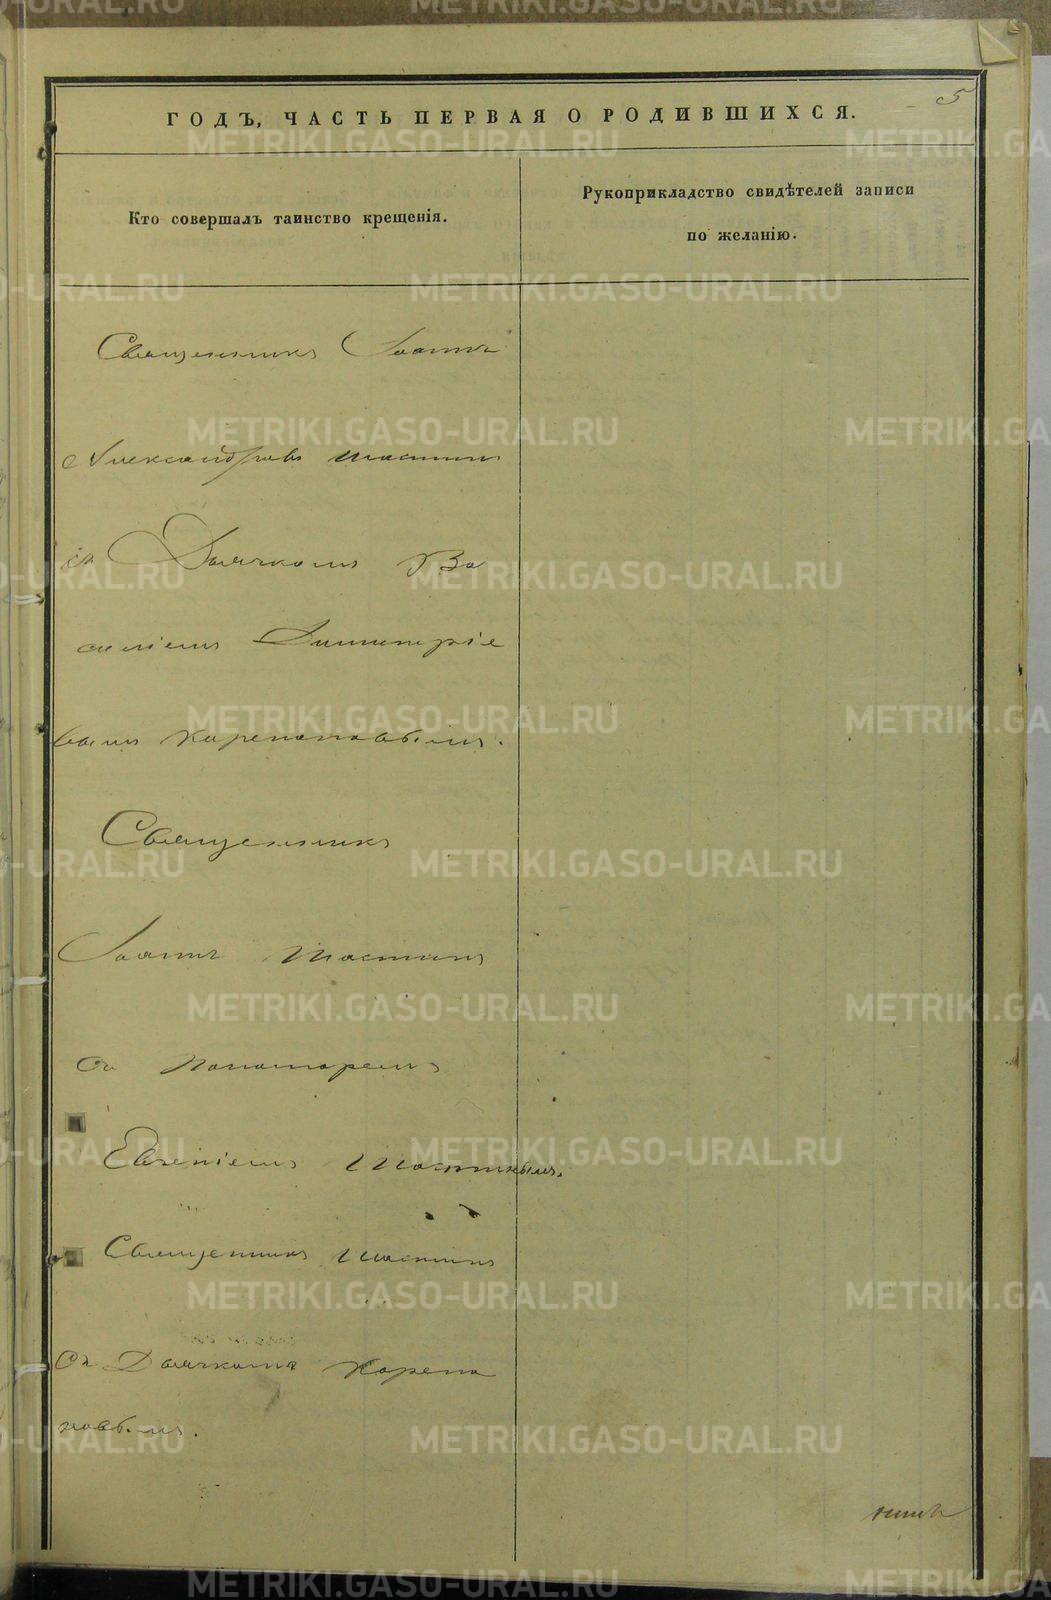 METRIKI.GASO-URAL.RU
5
ГОДЪ, ЧАСТЬ ПЕРВАЯ О РОДИВШИХСЯ.
Кто совершалъ таинство крещенія.
Рукоприкладство свидѣтелей записи
по желанію.
Священникъ Іоаннъ
Александровъ Шастинъ
съ Дьячкомъ Ва
силіемъ Димитріе
вымъ Карепановымъ.
Священникъ
Іоаннъ Шастинъ
съ Пономаремъ
Евгеніемъ Шастинымъ.
Священникъ Шастинъ
съ Дьячкомъ Карепа
новымъ.